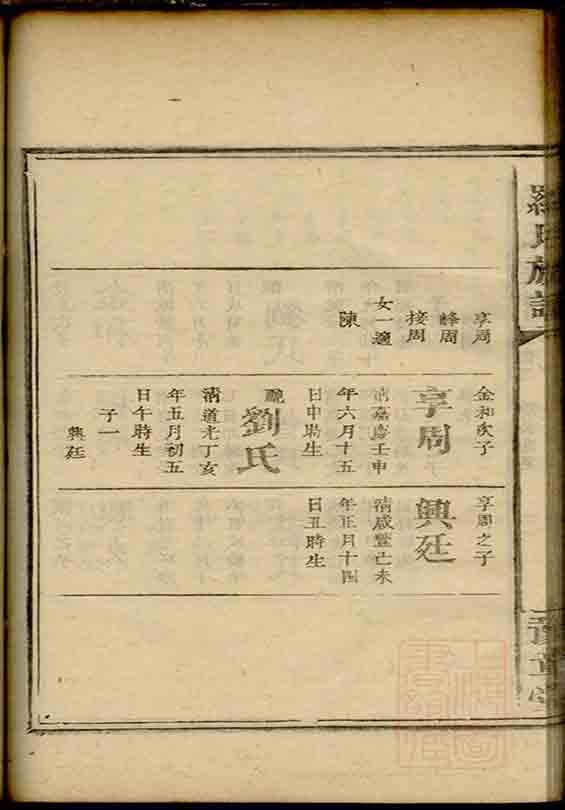 羅氏族譜
享周
峰周
接周
女一適
陳
金和次子
享周
清嘉慶壬申
年六月十五
日申時生
配
劉氏
清道光丁亥
年五月初五
日午時生
子一
興廷
享周之子
興廷
清咸豐己未
年正月十四
日丑時生